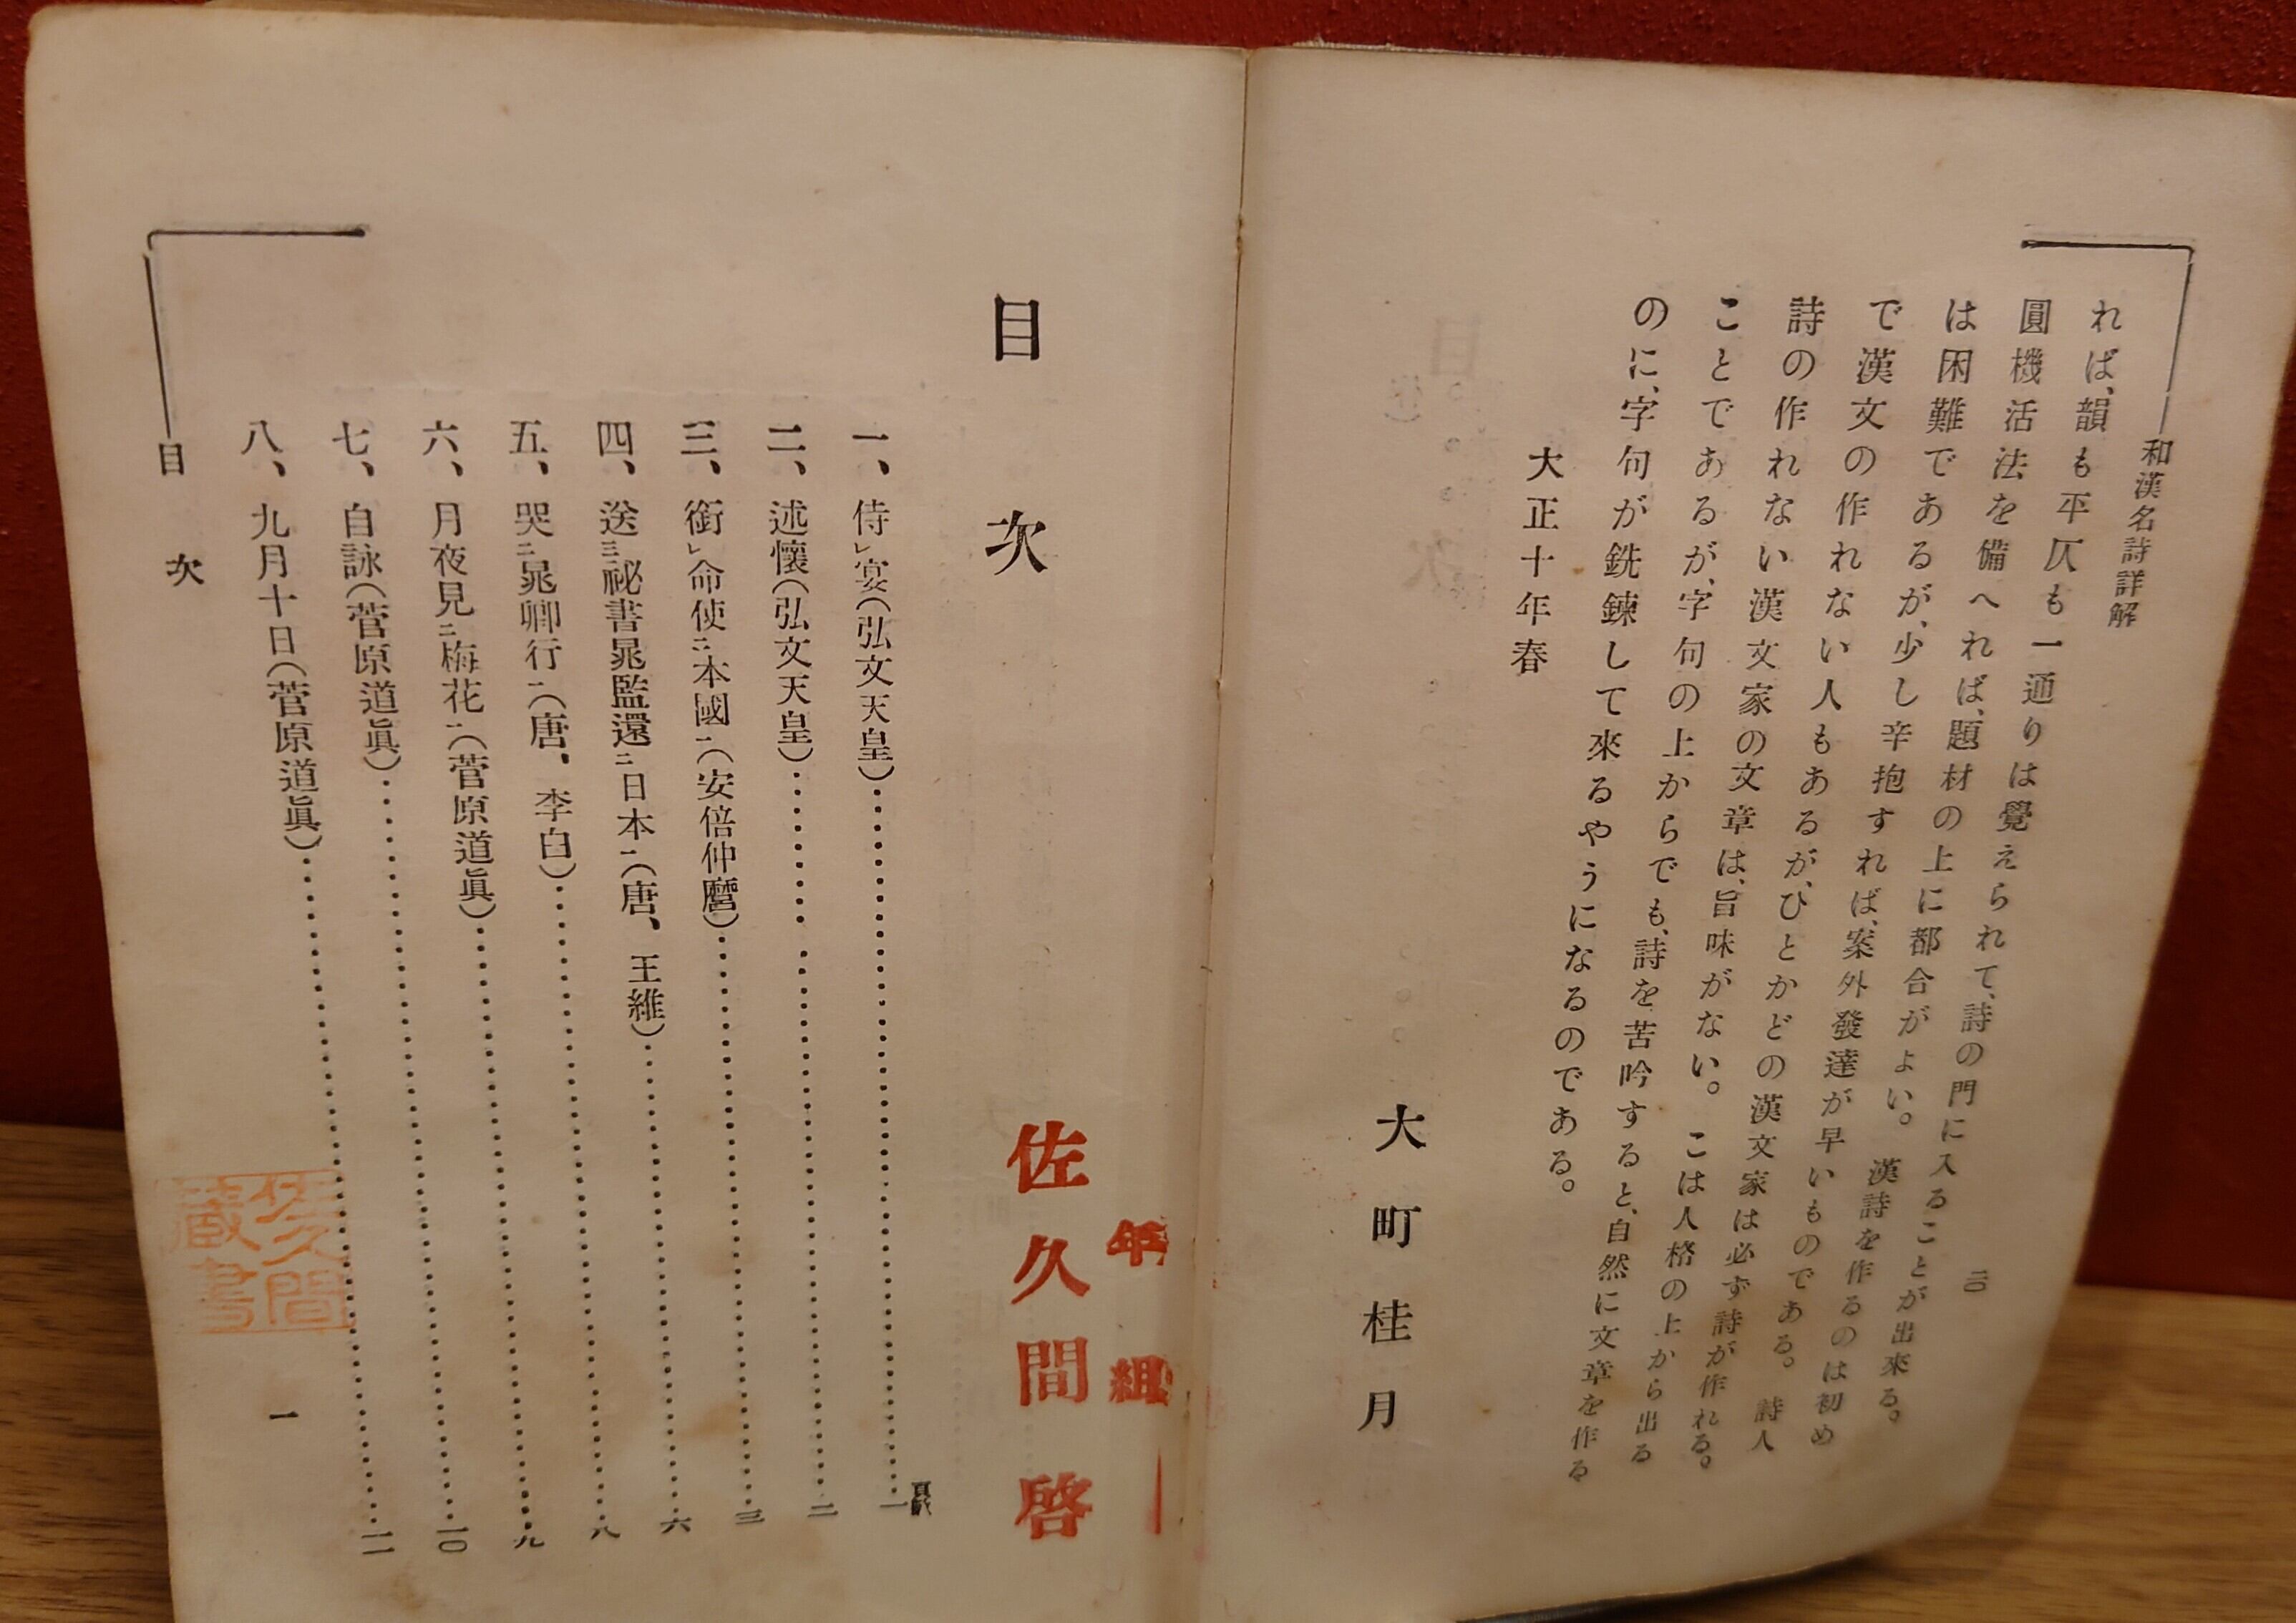 和漢名詩詳解
れば、韻も平仄も一通りは覺えられて、詩の門に入ることが出來る。
圓機活法を備へれば、題材の上に都合がよい。漢詩を作るのは初め
は困難であるが、少し辛抱すれば、案外發達が早いものである。詩人
で漢文の作れない人もあるが、ひとかどの漢文家は必ず詩が作れる。
詩の作れない漢文家の文章は、旨味がない。こは人格の上から出る
ことであるが、字句の上からでも、詩を苦吟すると、自然に文章を作る
のに、字句が銑鍊して來るやうになるのである。
大正十年春
大町桂月
年 組
佐久間啓
目次
頁數
一、侍レ宴(弘文天皇)……一
二、述懷(弘文天皇)……二
三、銜レ命使二本國一(安倍仲麿)……三
四、送三祕書晁監還二日本一(唐、王維)……六
五、哭二晁卿行一(唐、李白)……八
六、月夜見二梅花一(菅原道眞)……九
七、自詠(菅原道眞)……一〇
八、九月十日(菅原道眞)……一一
目次
一
佐久間
蔵書